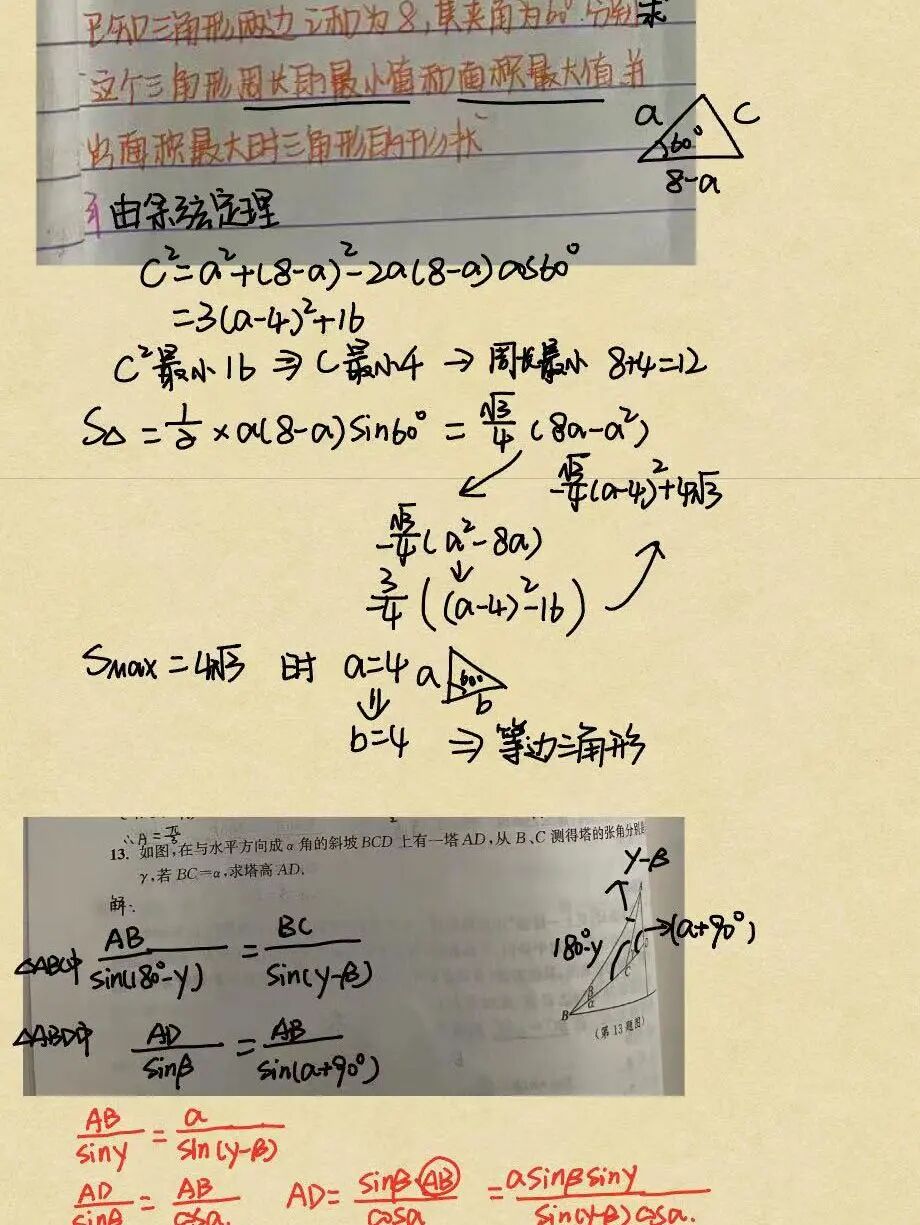 已知三角形两边之和为8,其夹角为60°.分别求
这个三角形周长的最小值和面积最大值并
出面积最大时三角形的形状
a
60°
c
8-a
由余弦定理
C²=a²+(8-a)²-2a(8-a)cos60°
=3(a-4)²+16
C²最小16 ⇒ C最小4 → 周长最小 8+4=12
S△ = 1/2 × a(8-a)sin60° = √3/4 (8a-a²)
-√3/4(a-4)²+4√3
-√3/4(a²-8a)
-3/4((a-4)²-16)
Smax=4√3 时 a=4
a
60°
b
b=4 ⇒ 等边三角形
∴A=π/3
13. 如图,在与水平方向成α角的斜坡BCD上有一塔AD,从B、C测得塔的张角分别是
γ,若BC=α,求塔高AD.
解:
γ-β
180°-γ
(a+90°)
B
C
(第13题图)
△ABC中 AB/sin(180°-γ) = BC/sin(γ-β)
△ABD中 AD/sinβ = AB/sin(a+90°)
AB/sinγ = a/sin(γ-β)
AD/sinβ = AB/cosa. AD= sinβ·AB/cosa = asinβsinγ/sin(γ-β)cosa.